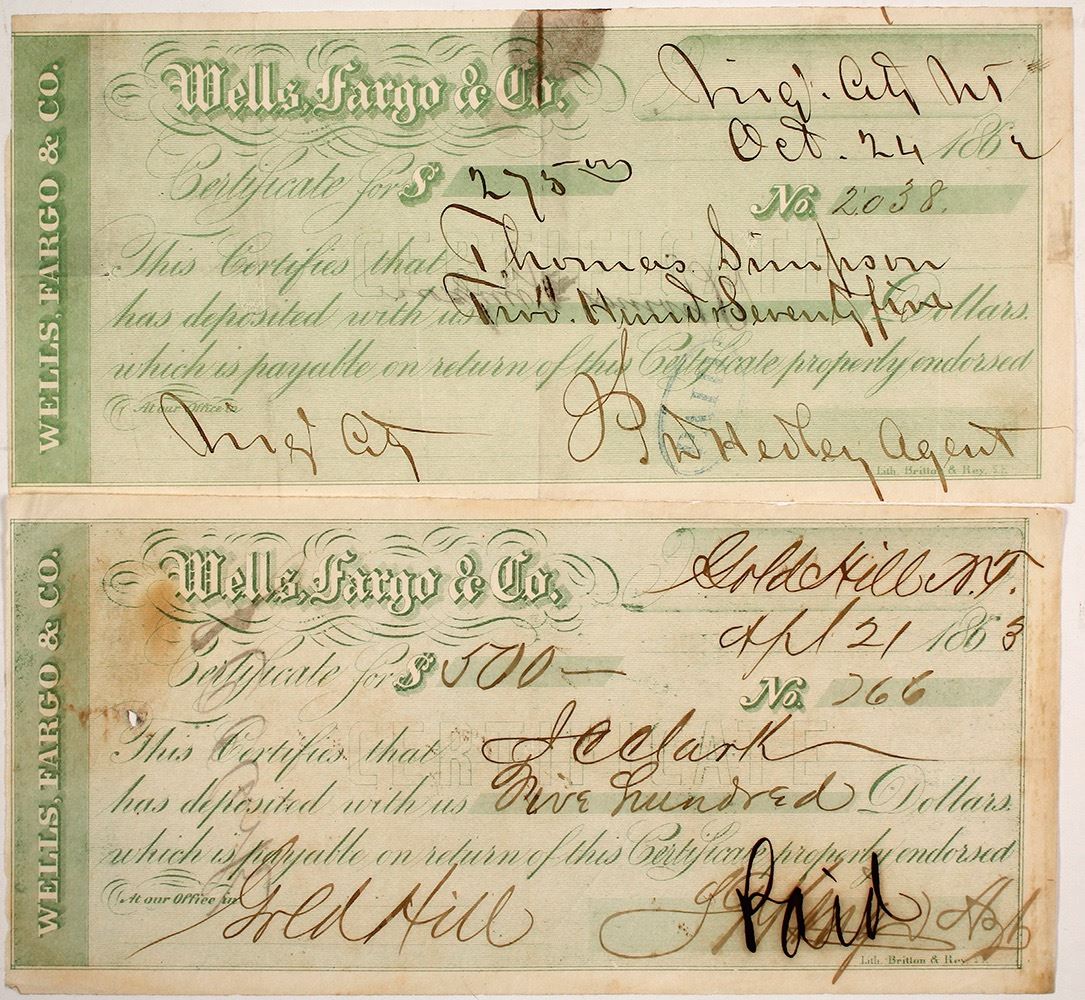 WELLS, FARGO & CO.
Wells, Fargo & Co.
Virga. City NT
Oct. 24 1862
Certificate for $ 275 00
No. 2038.
CERTIFICATE
This Certifies that Thomas Simpson
has deposited with us Two. Hund. & Seventy five Dollars.
which is payable on return of this Certificate properly endorsed
PAID
At our Office in
Virga City
Hedley Agent
Lith. Britton & Rey, S.F.
WELLS, FARGO & CO.
Wells, Fargo & Co.
Gold Hill N.T.
Apl 21 1863
Certificate for $ 500 —
No. 266
CERTIFICATE
This Certifies that J C Clark
has deposited with us Five hundred Dollars.
which is payable on return of this Certificate properly endorsed
At our Office in Gold Hill
Paid
Agt
Lith. Britton & Rey, S.F.